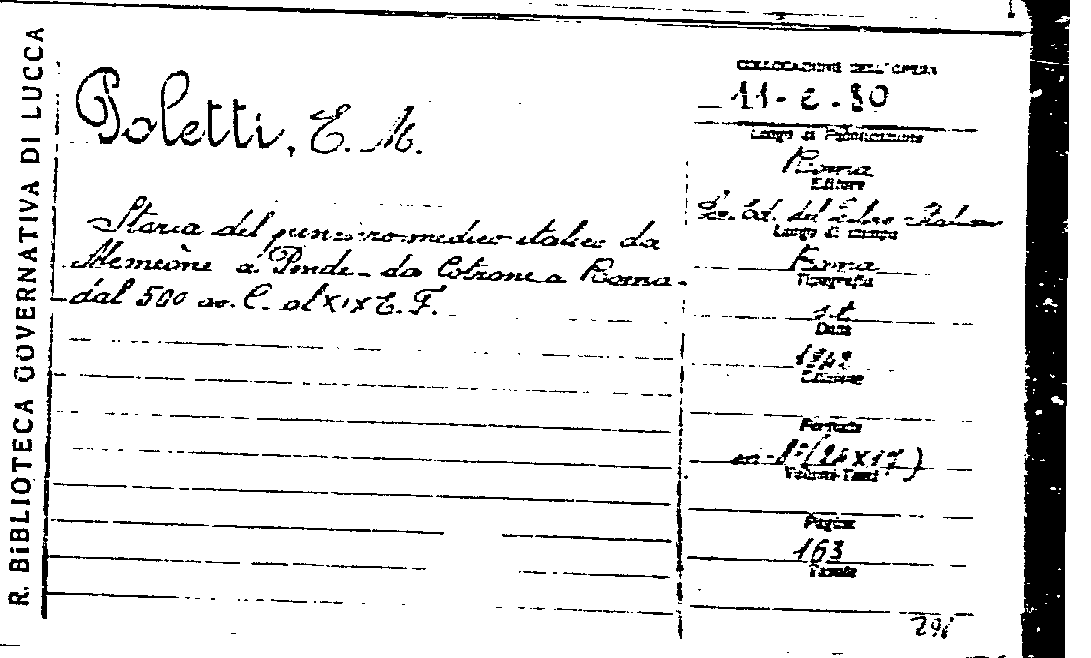 R. BIBLIOTECA GOVERNATIVA DI LUCCA
Poletti, E. M.
Storia del pensiero medico italico da
Alcmeone a Pende - da Cotrone a Roma -
dal 500 av. C. al XIX E. F.
COLLOCAZIONE DELL'OPERA
11-e-80
Luogo di Pubblicazione
Roma
Editore
del Libro Italiano
Luogo di stampa
Roma
Tipografia
s.t.
Data
1942
Edizione
Formato
in-8° (24x17)
Volume-Tomi
Pagine
163
291